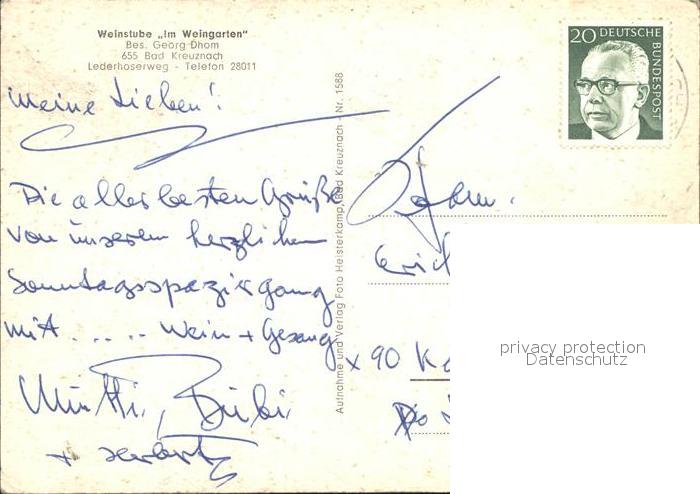 Weinstube „Im Weingarten"
Bes. Georg Dhom
655 Bad Kreuznach
Lederhoserweg - Telefon 28011
Meine Lieben!
Die allerbesten Grüße
von unserem herzlichen
Sonntagsspaziergang
mit..... Wein + Gesang
Mutti, Bubi
+ Herbert
Aufnahme und Verlag Foto Heisterkamp, Bad Kreuznach - Nr. 1588
20 DEUTSCHE
BUNDESPOST
Fahm.
Erich
x 90 K
privacy protection
Datenschutz